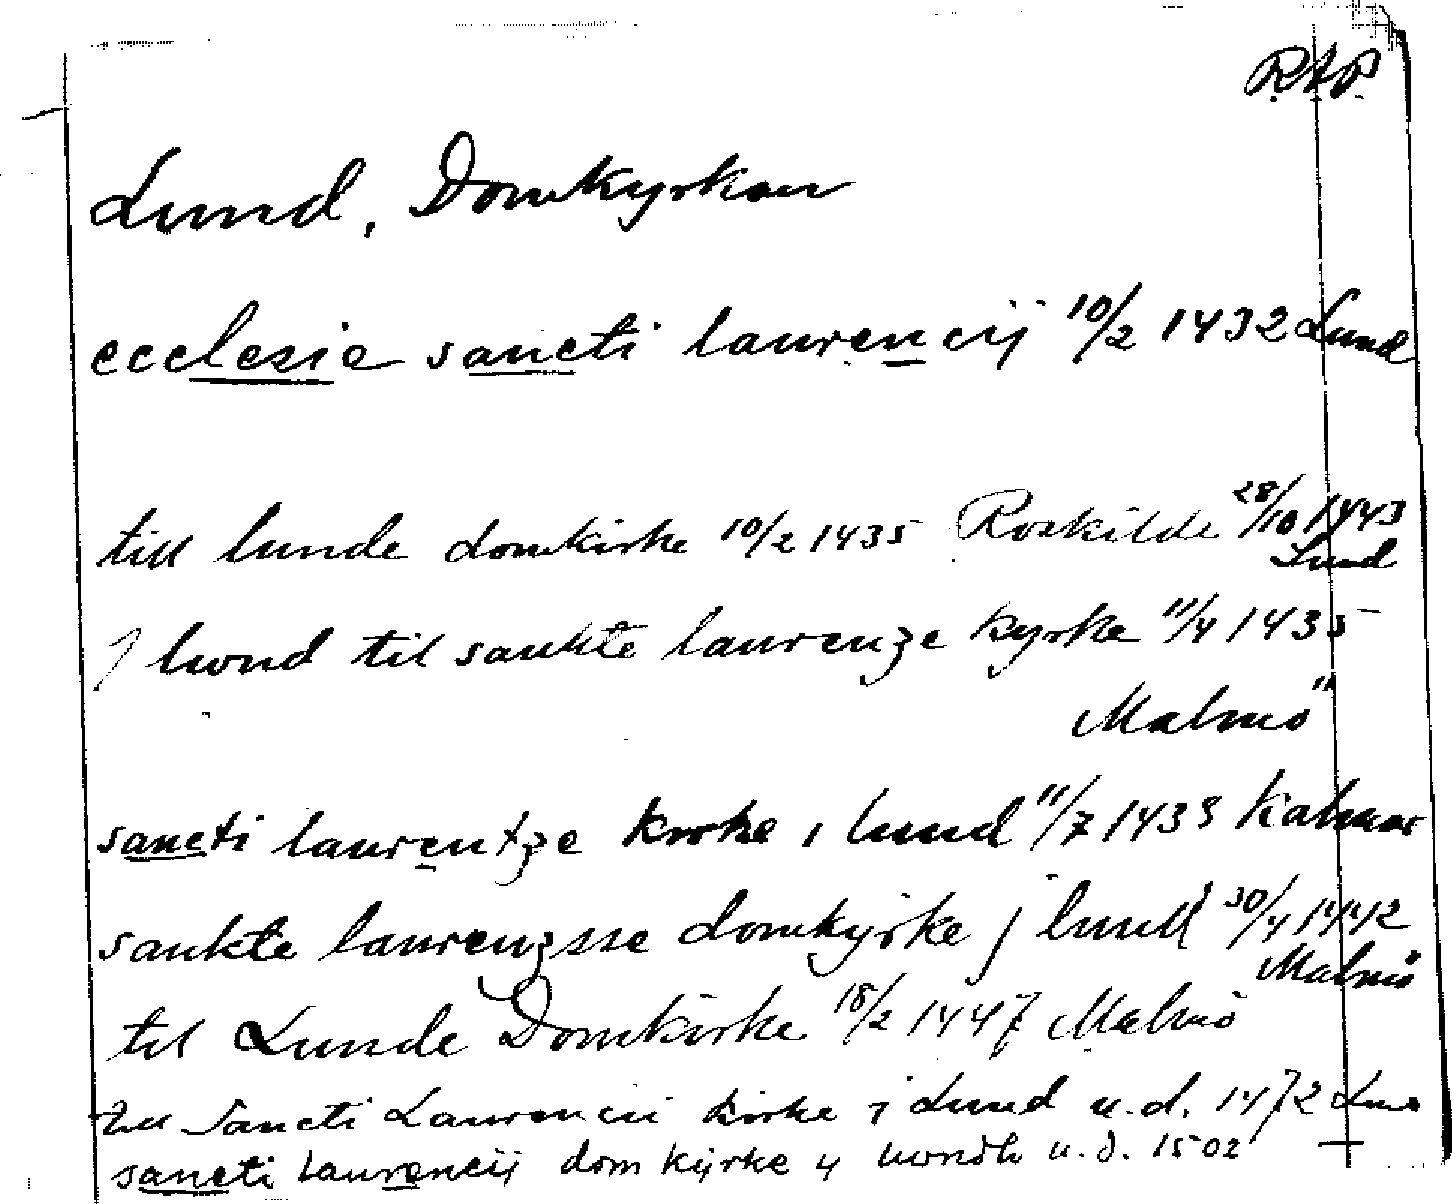 RAP.
Lund, Domkyrkan
ecclesie sancti laurencij 10/2 1432 Lund
till lunde domkirke 10/2 1435 Roskilde 28/10 1443
Lund
J lwnd til sankte laurenze kyrke 11/4 1435
Malmö
sancti laurentze kirke i lund 11/7 1435 Kalmar
sankte laurenzsse domkyrke j lund 30/4 1442
Malmö
til Lunde Domkirke 18/2 1447 Malmö
till Sancti Laurencii kirke i Lund u.d. 1472
sancti laurencij dom kyrke y u.d. 1502